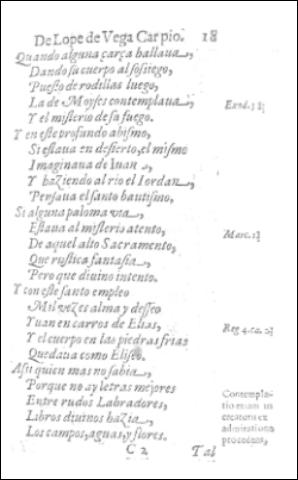 De Lope de Vega Carpio. 18
Quando alguna çarça hallaua,
Dando su cuerpo al sossiego,
Puesto de rodillas luego,
La de Moyses contemplaua,
Exod. 3
Y el misterio de su fuego.
Y en este profundo abismo,
Si estaua en desierto, el mismo
Imaginaua de Iuan,
Y haziendo al rio el Iordan,
Pensaua el santo bautismo,
Si alguna paloma via,
Estaua al misterio atento,
Marc. 1
De aquel alto Sacramento,
Que rustica fantasia,
Pero que diuino intento.
Y con este santo empleo
Mil vezes alma y desseo
Yuan en carros de Elias,
Reg 4. ca. 2
Y el cuerpo en las piedras frias
Quedaua como Eliseo.
Assi quien mas no sabia,
Porque no ay letras mejores
Contempla-
Entre rudos Labradores,
tio enim in
creatoris ex
Libros diuinos hazia,
admiratione
Los campos, aguas, y flores.
procedens,
C 2 Tal